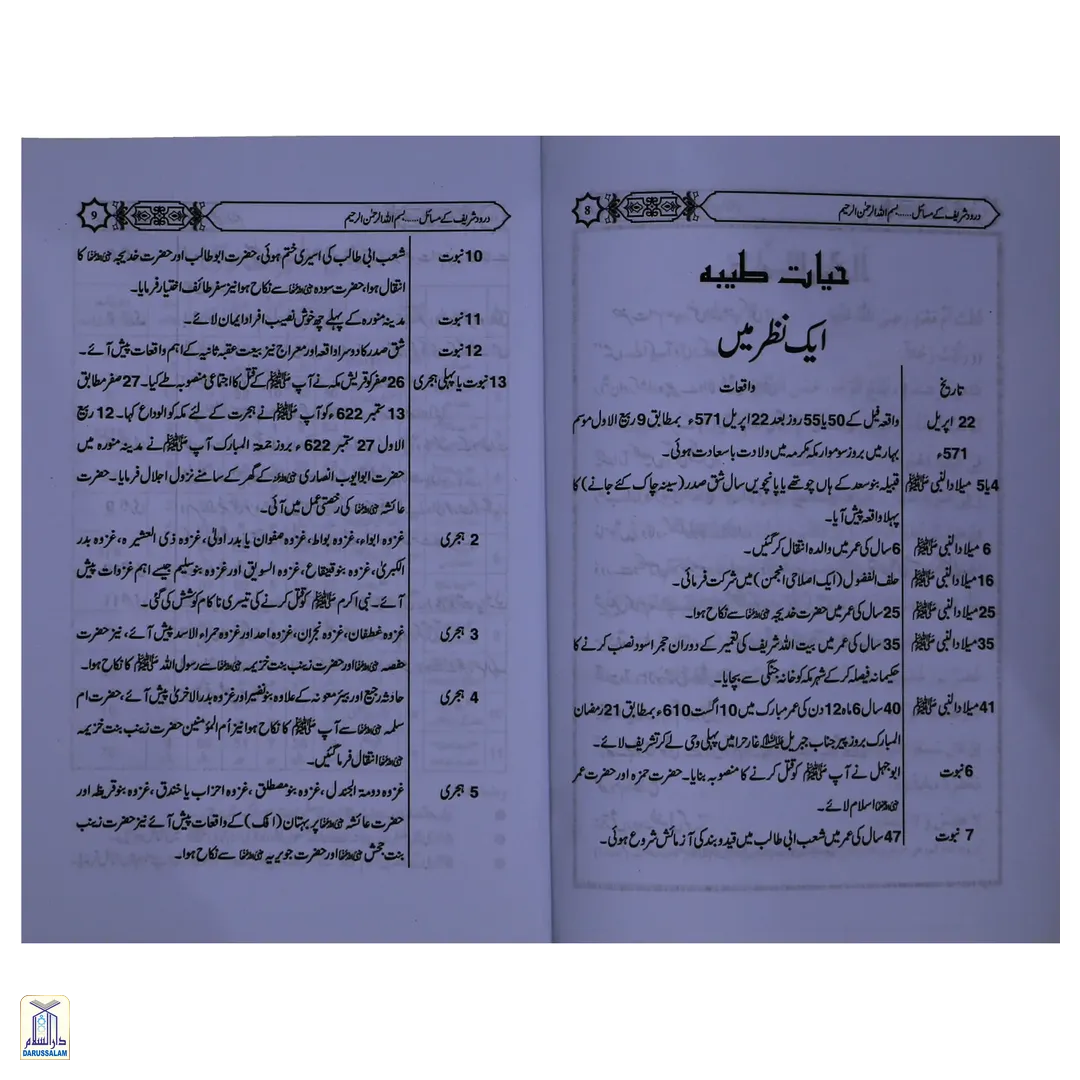 درود شریف کے مسائل......بسم اللہ الرحمٰن الرحیم
8
حیات طیبہ
ایک نظر میں
تاریخ واقعات
22 اپریل واقعہ فیل کے 50 یا 55 روز بعد 22 اپریل 571ء بمطابق 9 ربیع الاول موسم
571ء بہار میں بروز سوموار مکہ مکرمہ میں ولادت باسعادت ہوئی۔
4 یا 5 میلاد النبی ﷺ قبیلہ بنو سعد کے ہاں چوتھے یا پانچویں سال شق صدر (سینہ چاک کئے جانے) کا
پہلا واقعہ پیش آیا۔
6 میلاد النبی ﷺ 6 سال کی عمر میں والدہ انتقال کر گئیں۔
16 میلاد النبی ﷺ حلف الفضول (ایک اصلاحی انجمن) میں شرکت فرمائی۔
25 میلاد النبی ﷺ 25 سال کی عمر میں حضرت خدیجہ رضی اللہ عنہا سے نکاح ہوا۔
35 میلاد النبی ﷺ 35 سال کی عمر میں بیت اللہ شریف کی تعمیر کے دوران حجر اسود نصب کرنے کا
حکیمانہ فیصلہ کر کے شہر مکہ کو خانہ جنگی سے بچایا۔
41 میلاد النبی ﷺ 40 سال 6 ماہ 12 دن کی عمر مبارک میں 10 اگست 610ء بمطابق 21 رمضان
المبارک بروز پیر جناب جبریل علیہ السلام غار حرا میں پہلی وحی لے کر تشریف لائے۔
6 نبوت ابوجہل نے آپ ﷺ کو قتل کرنے کا منصوبہ بنایا۔ حضرت حمزہ اور حضرت عمر
رضی اللہ عنہما اسلام لائے۔
7 نبوت 47 سال کی عمر میں شعب ابی طالب میں قید و بند کی آزمائش شروع ہوئی۔
درود شریف کے مسائل......بسم اللہ الرحمٰن الرحیم
9
10 نبوت شعب ابی طالب کی اسیری ختم ہوئی، حضرت ابوطالب اور حضرت خدیجہ رضی اللہ عنہا کا
انتقال ہوا، حضرت سودہ رضی اللہ عنہا سے نکاح ہوا نیز سفر طائف اختیار فرمایا۔
11 نبوت مدینہ منورہ کے پہلے چھ خوش نصیب افراد ایمان لائے۔
12 نبوت شق صدر کا دوسرا واقعہ اور معراج نیز بیعت عقبہ ثانیہ کے اہم واقعات پیش آئے۔
13 نبوت یا پہلی ہجری 26 صفر کو قریش مکہ نے آپ ﷺ کے قتل کا اجتماعی منصوبہ طے کیا۔ 27 صفر مطابق
13 ستمبر 622ء کو آپ ﷺ نے ہجرت کے لئے مکہ کو الوداع کہا۔ 12 ربیع
الاول 27 ستمبر 622ء بروز جمعۃ المبارک آپ ﷺ نے مدینہ منورہ میں
حضرت ابوایوب انصاری رضی اللہ عنہ کے گھر کے سامنے نزول اجلال فرمایا۔ حضرت
عائشہ رضی اللہ عنہا کی رخصتی عمل میں آئی۔
2 ہجری غزوہ ابواء، غزوہ بواط، غزوہ صفوان یا بدر اولیٰ، غزوہ ذی العشیرہ، غزوہ بدر
الکبریٰ، غزوہ بنو قینقاع، غزوہ السویق اور غزوہ بنو سلیم جیسے اہم غزوات پیش
آئے۔ نبی اکرم ﷺ کو قتل کرنے کی تیسری ناکام کوشش کی گئی۔
3 ہجری غزوہ غطفان، غزوہ نجران، غزوہ احد اور غزوہ حمراء الاسد پیش آئے، نیز حضرت
حفصہ رضی اللہ عنہا اور حضرت زینب بنت خزیمہ رضی اللہ عنہا سے رسول اللہ ﷺ کا نکاح ہوا۔
4 ہجری حادثہ رجیع اور بیئر معونہ کے علاوہ بنو نضیر اور غزوہ بدر الاخریٰ پیش آئے، حضرت ام
سلمہ رضی اللہ عنہا سے آپ ﷺ کا نکاح ہوا نیز اُم المؤمنین حضرت زینب بنت خزیمہ
رضی اللہ عنہا انتقال فرما گئیں۔
5 ہجری غزوہ دومۃ الجندل، غزوہ بنو مصطلق، غزوہ احزاب یا خندق، غزوہ بنو قریظہ اور
حضرت عائشہ رضی اللہ عنہا پر بہتان (افک) کے واقعات پیش آئے نیز حضرت زینب
بنت جحش رضی اللہ عنہا اور حضرت جویریہ رضی اللہ عنہا سے نکاح ہوا۔
دار السلام
DARUSSALAM